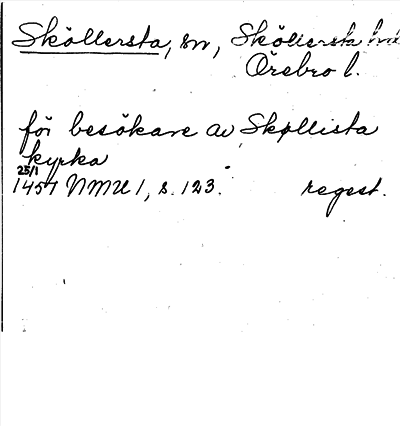 Sköllersta, sn, Sköllersta hrd
Örebro l.
för besökare av Skøllista
kyrka
25/1
1454 NMU 1, s. 123. regest.